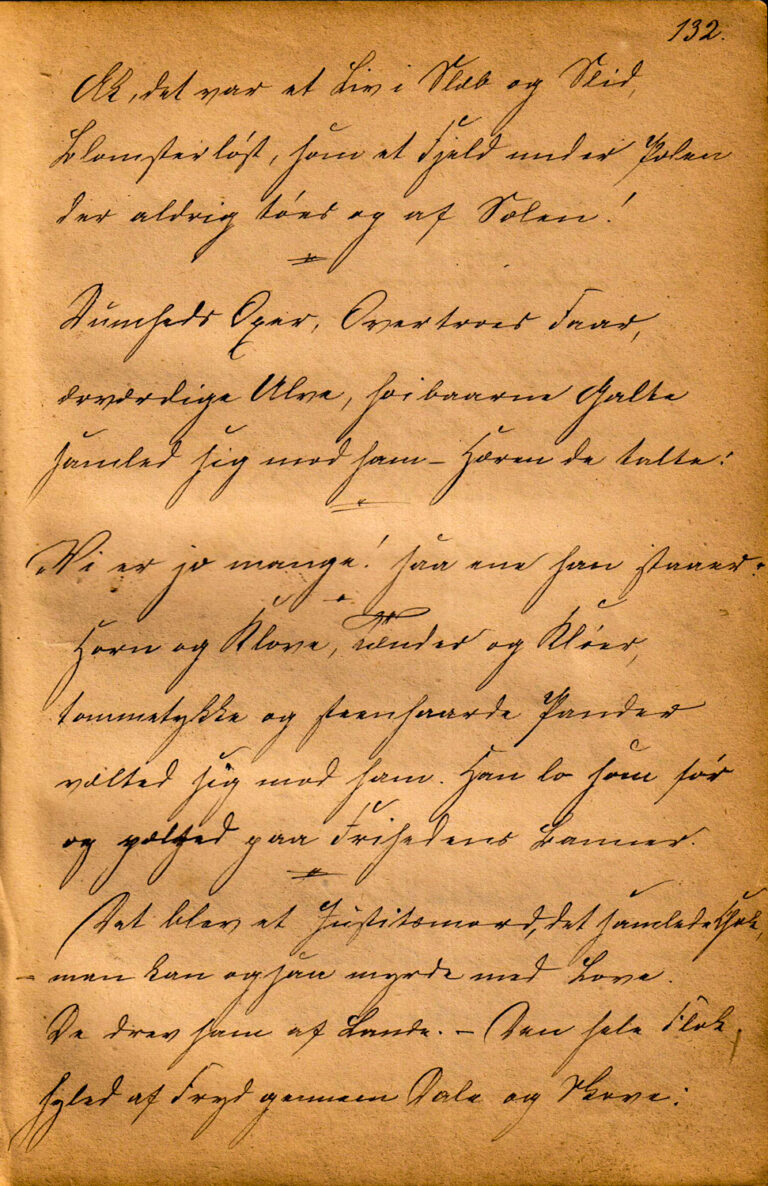 132.
Ak, det var et Liv i Slæb og Slid,
blomsterløst, som et Fjeld under Polen
der aldrig tøes op af Solen!
Dumheds Oxer, Overtroes Faar,
ærværdige Ulve, høibaarne Galte
samled sig mod ham – Hæren de talte:
"Vi er jo mange! saa ene han staaer."
Horn og Klove, Tænder og Kløer,
tommetykke og steenhaarde Pander
vælted sig mod ham. Han lo som før
og paa Frihedens Banner.
Det blev et Justitsmord, det samlede
– man kan ogsaa myrde med Love.
De drev ham af Lande. – Den hele Flok
hyled af Fryd gennem Dale og Skove: